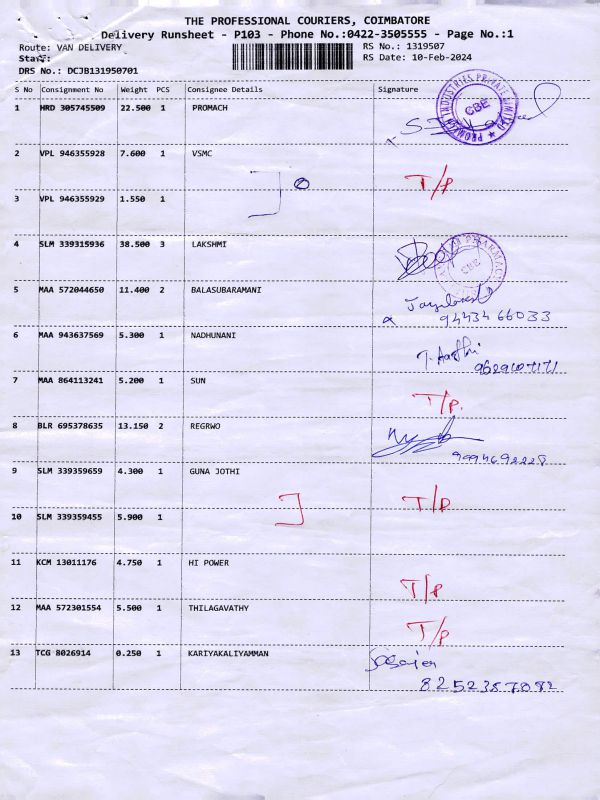 THE PROFESSIONAL COURIERS, COIMBATORE
Delivery Runsheet - P103 - Phone No.:0422-3505555 - Page No.:1
Route: VAN DELIVERY RS No.: 1319507
Staff: RS Date: 10-Feb-2024
DRS No.: DCJB131950701
S No Consignment No Weight PCS Consignee Details Signature
1 HRD 305745509 22.500 1 PROMACH
INDUSTRIES PRIVATE LIMITED ★ PROMACH CBE
2 VPL 946355928 7.600 1 VSMC T/P
3 VPL 946355929 1.550 1
4 SLM 339315936 38.500 3 LAKSHMI
PHARMAC CBE
5 MAA 572044650 11.400 2 BALASUBARAMANI
9443466033
6 MAA 943637569 5.300 1 NADHUNANI
T. Aarthi
9629107171
7 MAA 864113241 5.200 1 SUN T/P.
8 BLR 695378635 13.150 2 REGRWO
9994692228
9 SLM 339359659 4.300 1 GUNA JOTHI T/P
10 SLM 339359455 5.900 1
11 KCM 13011176 4.750 1 HI POWER T/P
12 MAA 572301554 5.500 1 THILAGAVATHY T/P
13 TCG 8026914 0.250 1 KARIYAKALIYAMMAN
8252357082